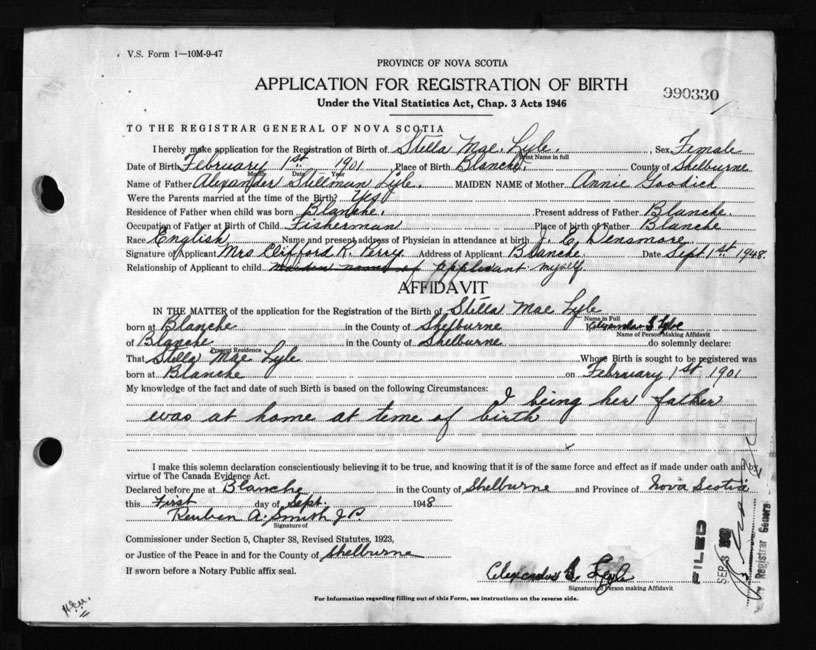 V.S. Form 1—10M-9-47
PROVINCE OF NOVA SCOTIA
APPLICATION FOR REGISTRATION OF BIRTH
990330
Under the Vital Statistics Act, Chap. 3 Acts 1946
TO THE REGISTRAR GENERAL OF NOVA SCOTIA
I hereby make application for the Registration of Birth of Stella Mae Lyle. , Sex Female
Print Name in full
Date of Birth February 1st 1901 Place of Birth Blanche. County of Shelburne
Month Date Year
Name of Father Alexander Stillman Lyle. MAIDEN NAME of Mother Annie Goodick
Were the Parents married at the time of the Birth? Yes
Residence of Father when child was born Blanche. Present address of Father Blanche.
Occupation of Father at Birth of Child Fisherman Place of birth of Father Blanche
Race English Name and present address of Physician in attendance at birth J. C. Densmore
Signature of Applicant Mrs Clifford K. Perry Address of Applicant Blanche Date Sept 1st 1948.
Relationship of Applicant to child maiden name of applicant myself
AFFIDAVIT
IN THE MATTER of the application for the Registration of the Birth of Stella Mae Lyle
Name in Full
born at Blanche in the County of Shelburne Alexander S Lyle
Name of Person Making Affidavit
of Blanche in the County of Shelburne do solemnly declare:
Present Residence
That Stella Mae Lyle Whose Birth is sought to be registered was
born at Blanche on February 1st 1901
My knowledge of the fact and date of such Birth is based on the following Circumstances:
I being her father
was at home at teme of birth
I make this solemn declaration conscientiously believing it to be true, and knowing that it is of the same force and effect as if made under oath and by
virtue of The Canada Evidence Act.
Declared before me at Blanche in the County of Shelburne and Province of Nova Scotia
this First day of Sept. 1948
Reuben A. Smith J.P.
Signature of
Commissioner under Section 5, Chapter 38, Revised Statutes, 1923,
or Justice of the Peace in and for the County of Shelburne
If sworn before a Notary Public affix seal.
Alexander S Lyle
Signature of Person making Affidavit
For Information regarding filling out of this Form, see instructions on the reverse side.
FILED
SEP
Registrar General